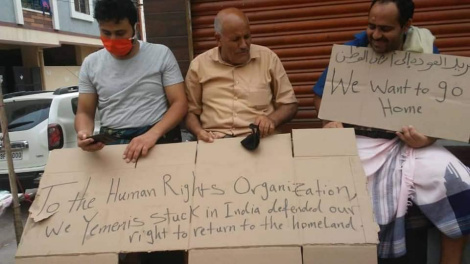 نريد العودة إلى أرض الوطن
We Want to go
Home
To the Human Rights Organization
We Yemenis stuck in India defended our
right to return to the homeland.